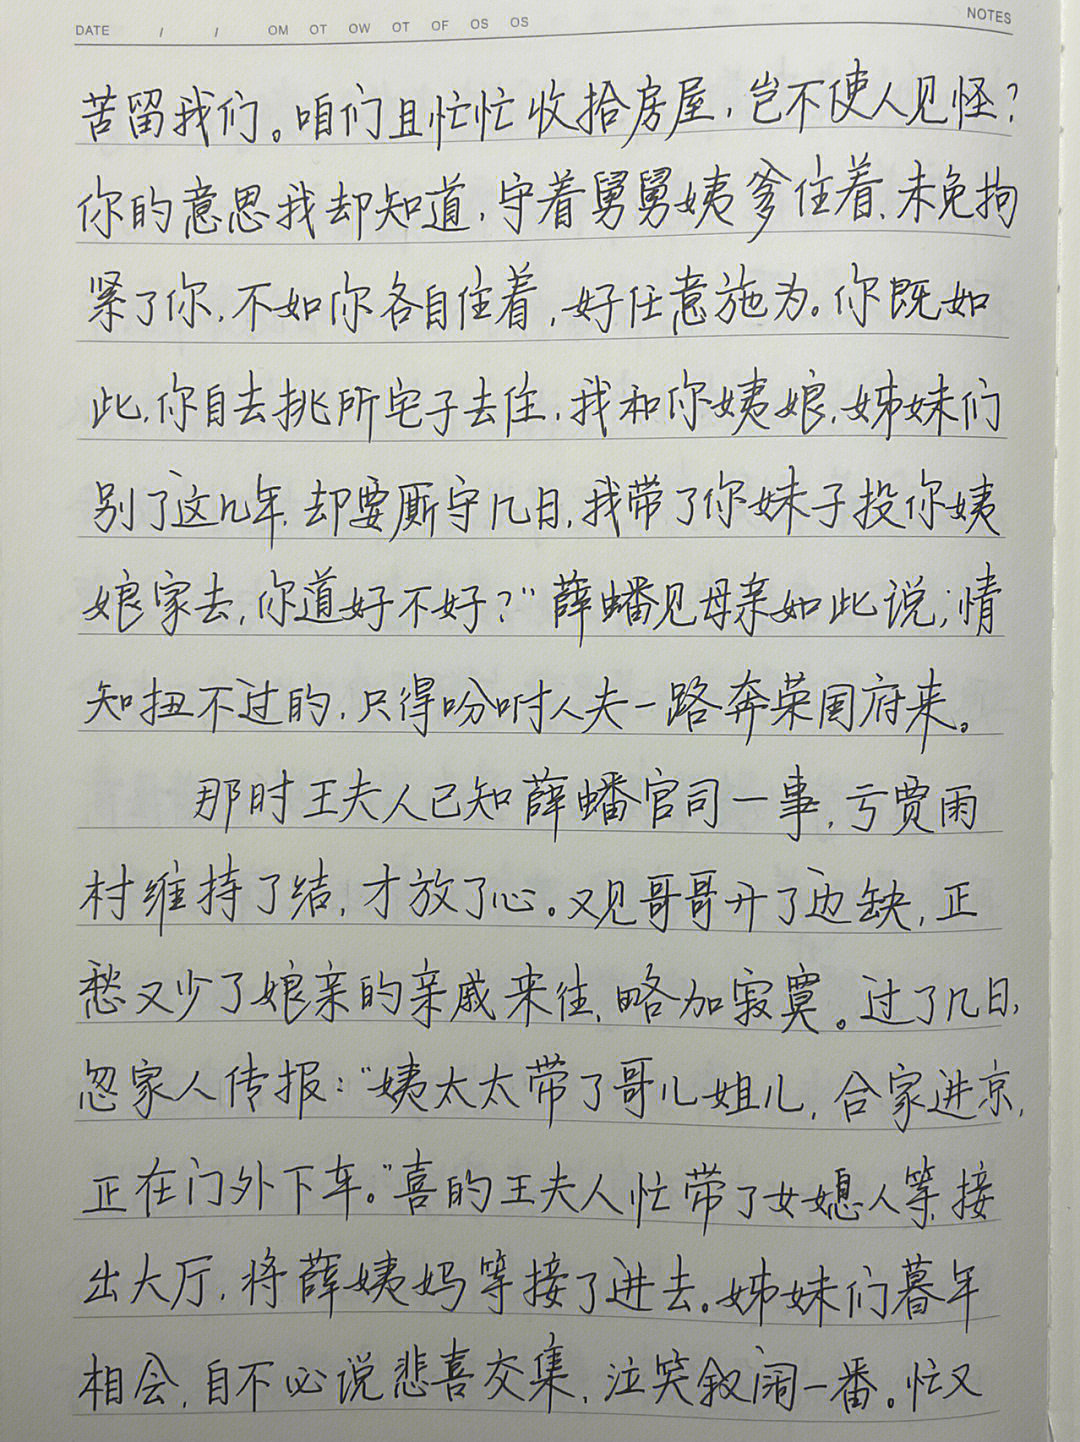 DATE / / OM OT OW OT OF OS OS NOTES
苦留我们。咱们且忙忙收拾房屋，岂不使人见怪？
你的意思我却知道，守着舅舅姨爹住着，未免拘
紧了你，不如你各自住着，好任意施为。你既如
此，你自去挑所宅子去住，我和你姨娘，姊妹们
别了这几年，却要厮守几日，我带了你妹子投你姨
娘家去，你道好不好？”薛蟠见母亲如此说，情
知扭不过的，只得吩咐人夫一路奔荣国府来。
那时王夫人已知薛蟠官司一事，亏贾雨
村维持了结，才放了心。又见哥哥升了边缺，正
愁又少了娘亲的亲戚来往，略加寂寞。过了几日，
忽家人传报：“姨太太带了哥儿姐儿，合家进京，
正在门外下车。”喜的王夫人忙带了女媳人等，接
出大厅，将薛姨妈等接了进去。姊妹们暮年
相会，自不必说悲喜交集，泣笑叙阔一番。忙又